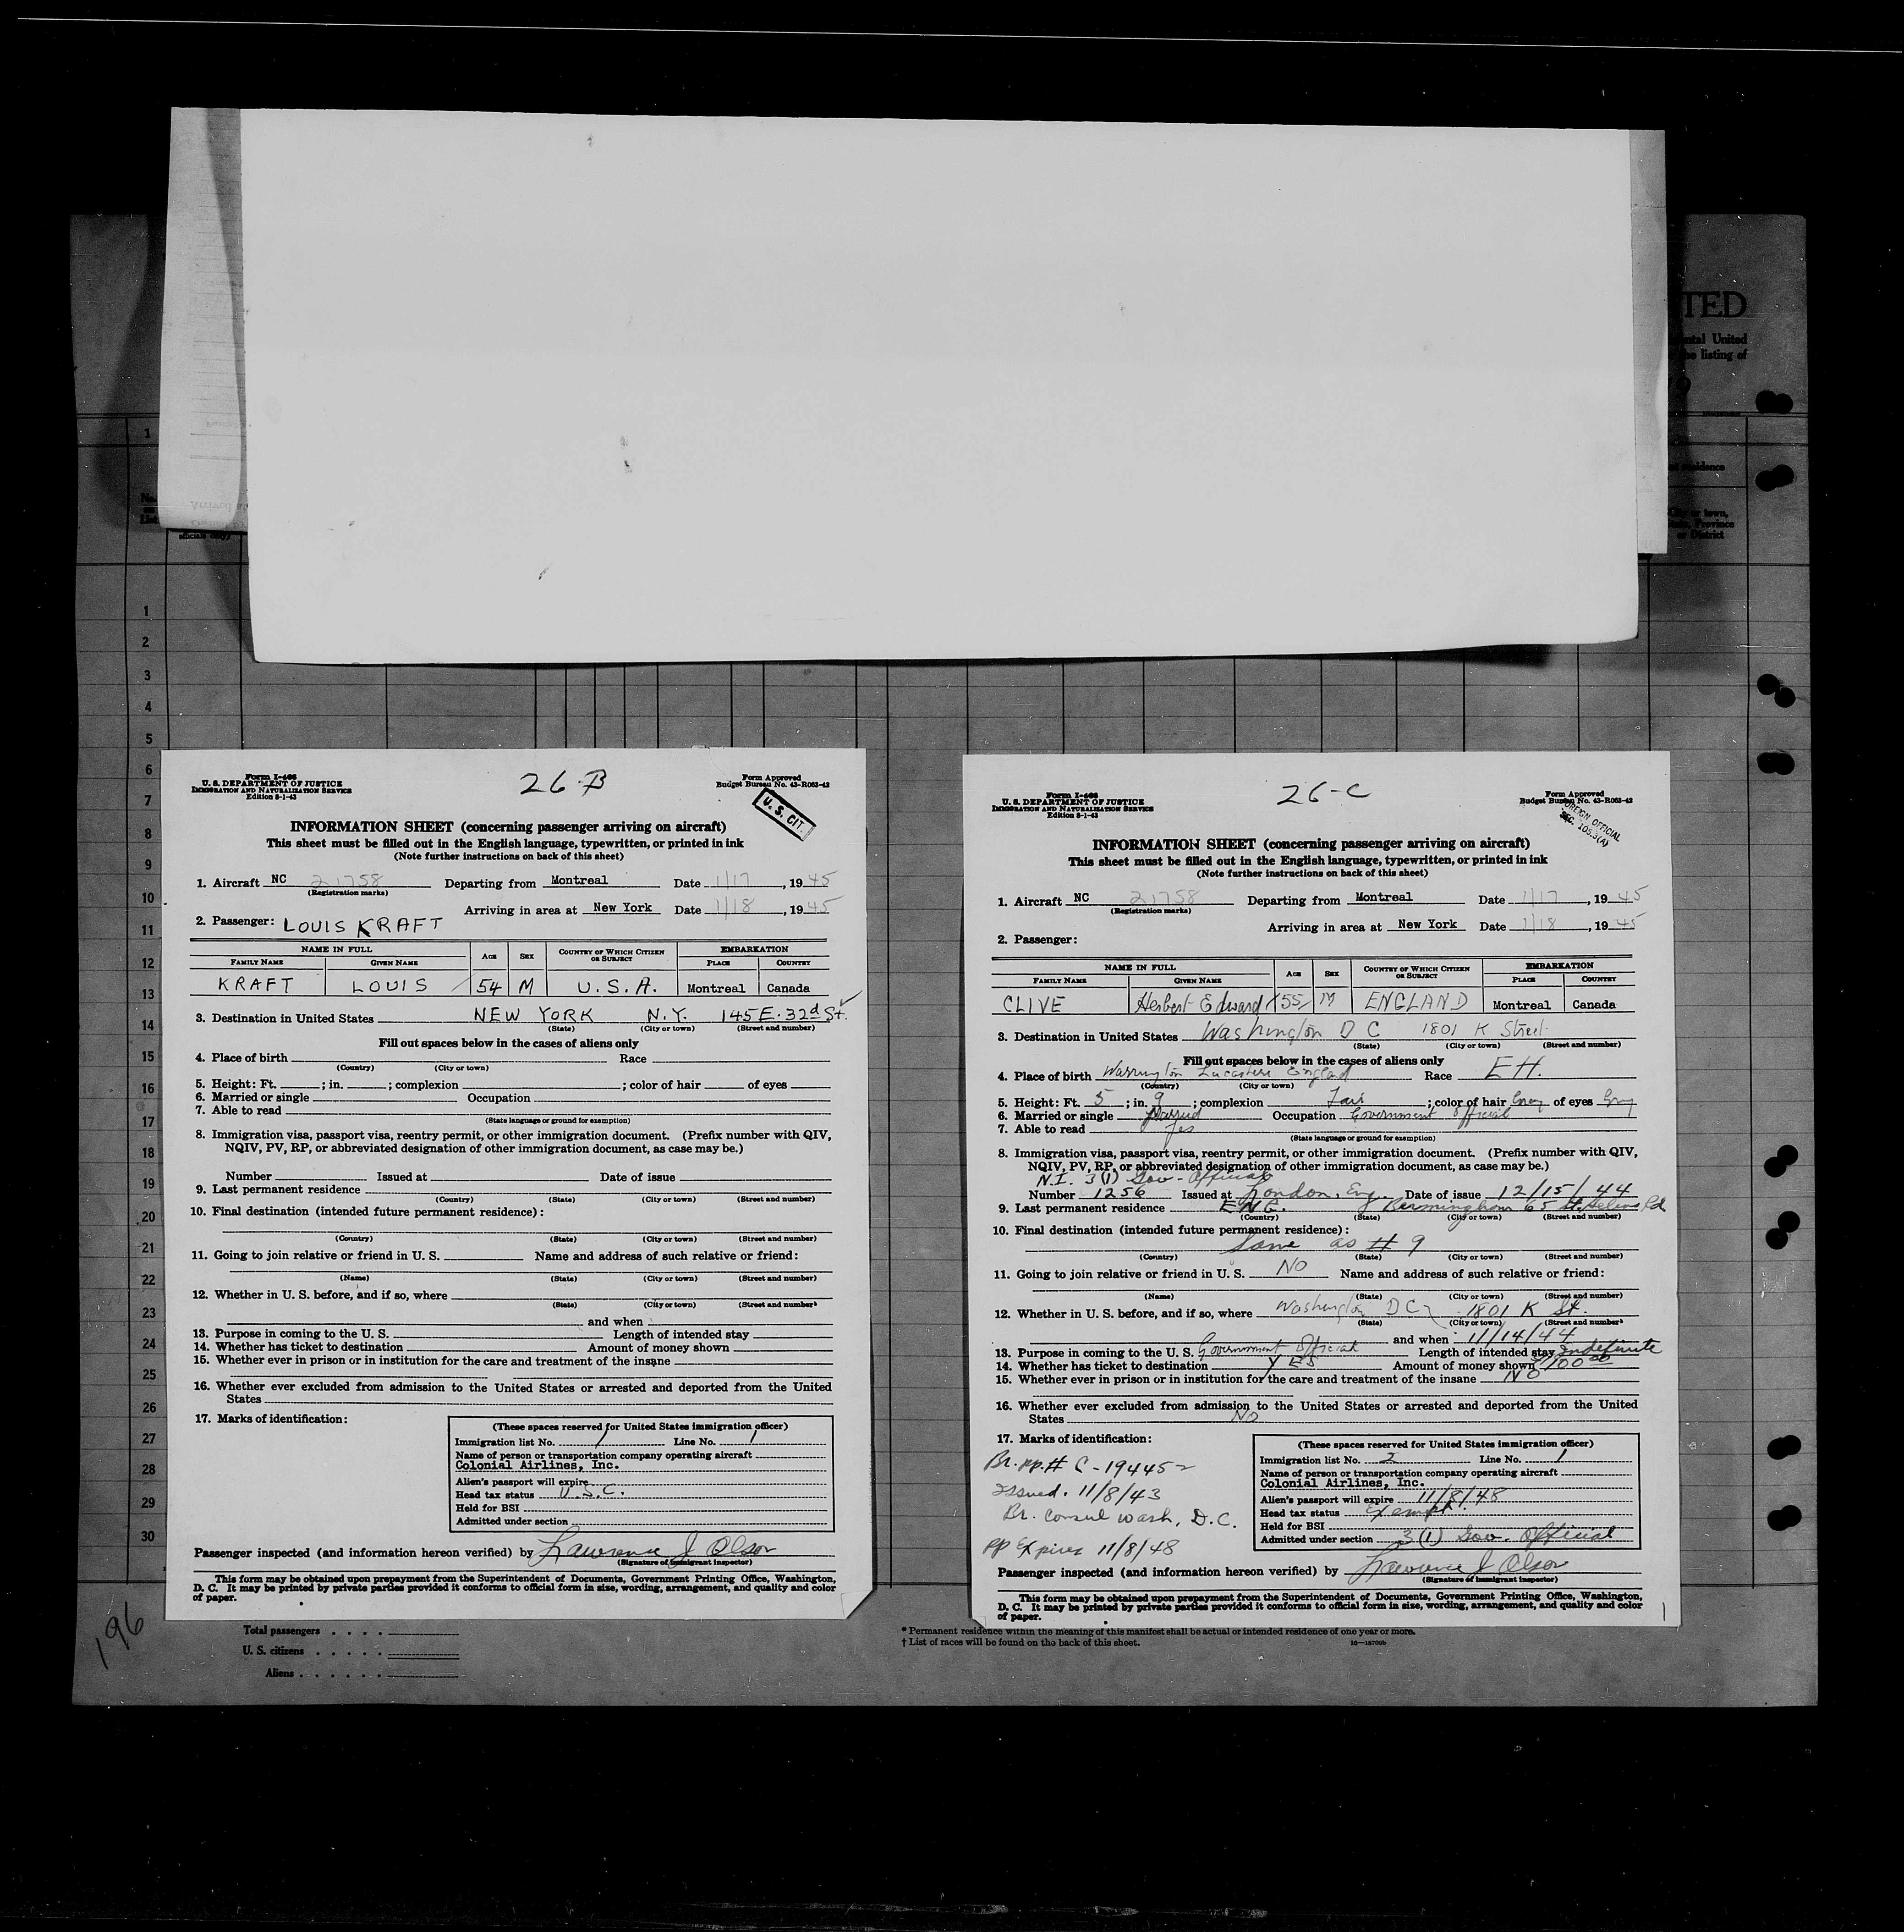 TED
ental United
the listing of
residence
City or town,
State, Province
or District
officials only)
1
1
2
3
4
5
6
7
8
9
10
11
12
13
14
15
16
17
18
19
20
21
22
23
24
25
26
27
28
29
30
Form I-466
U. S. DEPARTMENT OF JUSTICE
IMMIGRATION AND NATURALIZATION SERVICE
Edition 8-1-43
26-B
Form Approved
Budget Bureau No. 43-R063-42
U. S. CIT.
INFORMATION SHEET (concerning passenger arriving on aircraft)
This sheet must be filled out in the English language, typewritten, or printed in ink
(Note further instructions on back of this sheet)
1. Aircraft NC 21758 Departing from Montreal Date 1/17, 1945
(Registration marks)
Arriving in area at New York Date 1/18, 1945
2. Passenger: LOUIS KRAFT
NAME IN FULL AGE SEX COUNTRY OF WHICH CITIZEN OR SUBJECT EMBARKATION
FAMILY NAME GIVEN NAME PLACE COUNTRY
KRAFT LOUIS 54 M U.S.A. Montreal Canada
3. Destination in United States NEW YORK N.Y. 145 E. 32d St.
(State) (City or town) (Street and number)
Fill out spaces below in the cases of aliens only
4. Place of birth Race
(Country) (City or town)
5. Height: Ft. ; in. ; complexion ; color of hair of eyes
6. Married or single Occupation
7. Able to read
(State language or ground for exemption)
8. Immigration visa, passport visa, reentry permit, or other immigration document. (Prefix number with QIV,
NQIV, PV, RP, or abbreviated designation of other immigration document, as case may be.)
Number Issued at Date of issue
9. Last permanent residence
(Country) (State) (City or town) (Street and number)
10. Final destination (intended future permanent residence):
(Country) (State) (City or town) (Street and number)
11. Going to join relative or friend in U. S. Name and address of such relative or friend:
(Name) (State) (City or town) (Street and number)
12. Whether in U. S. before, and if so, where
(State) (City or town) (Street and number)
and when
13. Purpose in coming to the U. S. Length of intended stay
14. Whether has ticket to destination Amount of money shown
15. Whether ever in prison or in institution for the care and treatment of the insane
16. Whether ever excluded from admission to the United States or arrested and deported from the United
States
17. Marks of identification:
(These spaces reserved for United States immigration officer)
Immigration list No. 1 Line No. 1
Name of person or transportation company operating aircraft
Colonial Airlines, Inc.
Alien's passport will expire
Head tax status U.S.C.
Held for BSI
Admitted under section
Passenger inspected (and information hereon verified) by Lawrence J Olson
(Signature of immigrant inspector)
This form may be obtained upon prepayment from the Superintendent of Documents, Government Printing Office, Washington,
D. C. It may be printed by private parties provided it conforms to official form in size, wording, arrangement, and quality and color
of paper.
Form I-466
U. S. DEPARTMENT OF JUSTICE
IMMIGRATION AND NATURALIZATION SERVICE
Edition 8-1-43
26-C
Form Approved
Budget Bureau No. 43-R063-42
FOREIGN OFFICIAL
SEC. 105.3(A)
INFORMATION SHEET (concerning passenger arriving on aircraft)
This sheet must be filled out in the English language, typewritten, or printed in ink
(Note further instructions on back of this sheet)
1. Aircraft NC 21758 Departing from Montreal Date 1/17, 1945
(Registration marks)
Arriving in area at New York Date 1/18, 1945
2. Passenger:
NAME IN FULL AGE SEX COUNTRY OF WHICH CITIZEN OR SUBJECT EMBARKATION
FAMILY NAME GIVEN NAME PLACE COUNTRY
CLIVE Herbert Edward 55 M ENGLAND Montreal Canada
3. Destination in United States Washington D C 1801 K Street
(State) (City or town) (Street and number)
Fill out spaces below in the cases of aliens only
4. Place of birth Warrington England Race EH.
(Country) (City or town)
5. Height: Ft. 5 ; in. 9 ; complexion Fair ; color of hair Grey of eyes Grey
6. Married or single Married Occupation Government Official
7. Able to read Yes
(State language or ground for exemption)
8. Immigration visa, passport visa, reentry permit, or other immigration document. (Prefix number with QIV,
NQIV, PV, RP, or abbreviated designation of other immigration document, as case may be.)
N.I. 3(1) Gov- Official
Number 1256 Issued at London, Eng. Date of issue 12/15/44
9. Last permanent residence ENG. Birmingham 65 St. Helens Rd
(Country) (State) (City or town) (Street and number)
10. Final destination (intended future permanent residence):
Same as # 9
(Country) (State) (City or town) (Street and number)
11. Going to join relative or friend in U. S. NO Name and address of such relative or friend:
(Name) (State) (City or town) (Street and number)
12. Whether in U. S. before, and if so, where Washington DC 1801 K St.
(State) (City or town) (Street and number)
and when 11/14/44
13. Purpose in coming to the U. S. Government Official Length of intended stay Indefinite
14. Whether has ticket to destination YES Amount of money shown $100.00
15. Whether ever in prison or in institution for the care and treatment of the insane NO
16. Whether ever excluded from admission to the United States or arrested and deported from the United
States NO
17. Marks of identification:
Br. pp. # C-194452
Issued. 11/8/43
Br. Consul Wash. D.C.
PP Expires 11/8/48
(These spaces reserved for United States immigration officer)
Immigration list No. 2 Line No. 1
Name of person or transportation company operating aircraft
Colonial Airlines, Inc.
Alien's passport will expire 11/8/48
Head tax status Exempt.
Held for BSI
Admitted under section 3(1) Gov. Official
Passenger inspected (and information hereon verified) by Lawrence J Olson
(Signature of immigrant inspector)
This form may be obtained upon prepayment from the Superintendent of Documents, Government Printing Office, Washington,
D. C. It may be printed by private parties provided it conforms to official form in size, wording, arrangement, and quality and color
of paper.
196
Total passengers . . . .
U. S. citizens . . . . .
Aliens . . . . . .
* Permanent residence within the meaning of this manifest shall be actual or intended residence of one year or more.
† List of races will be found on the back of this sheet.